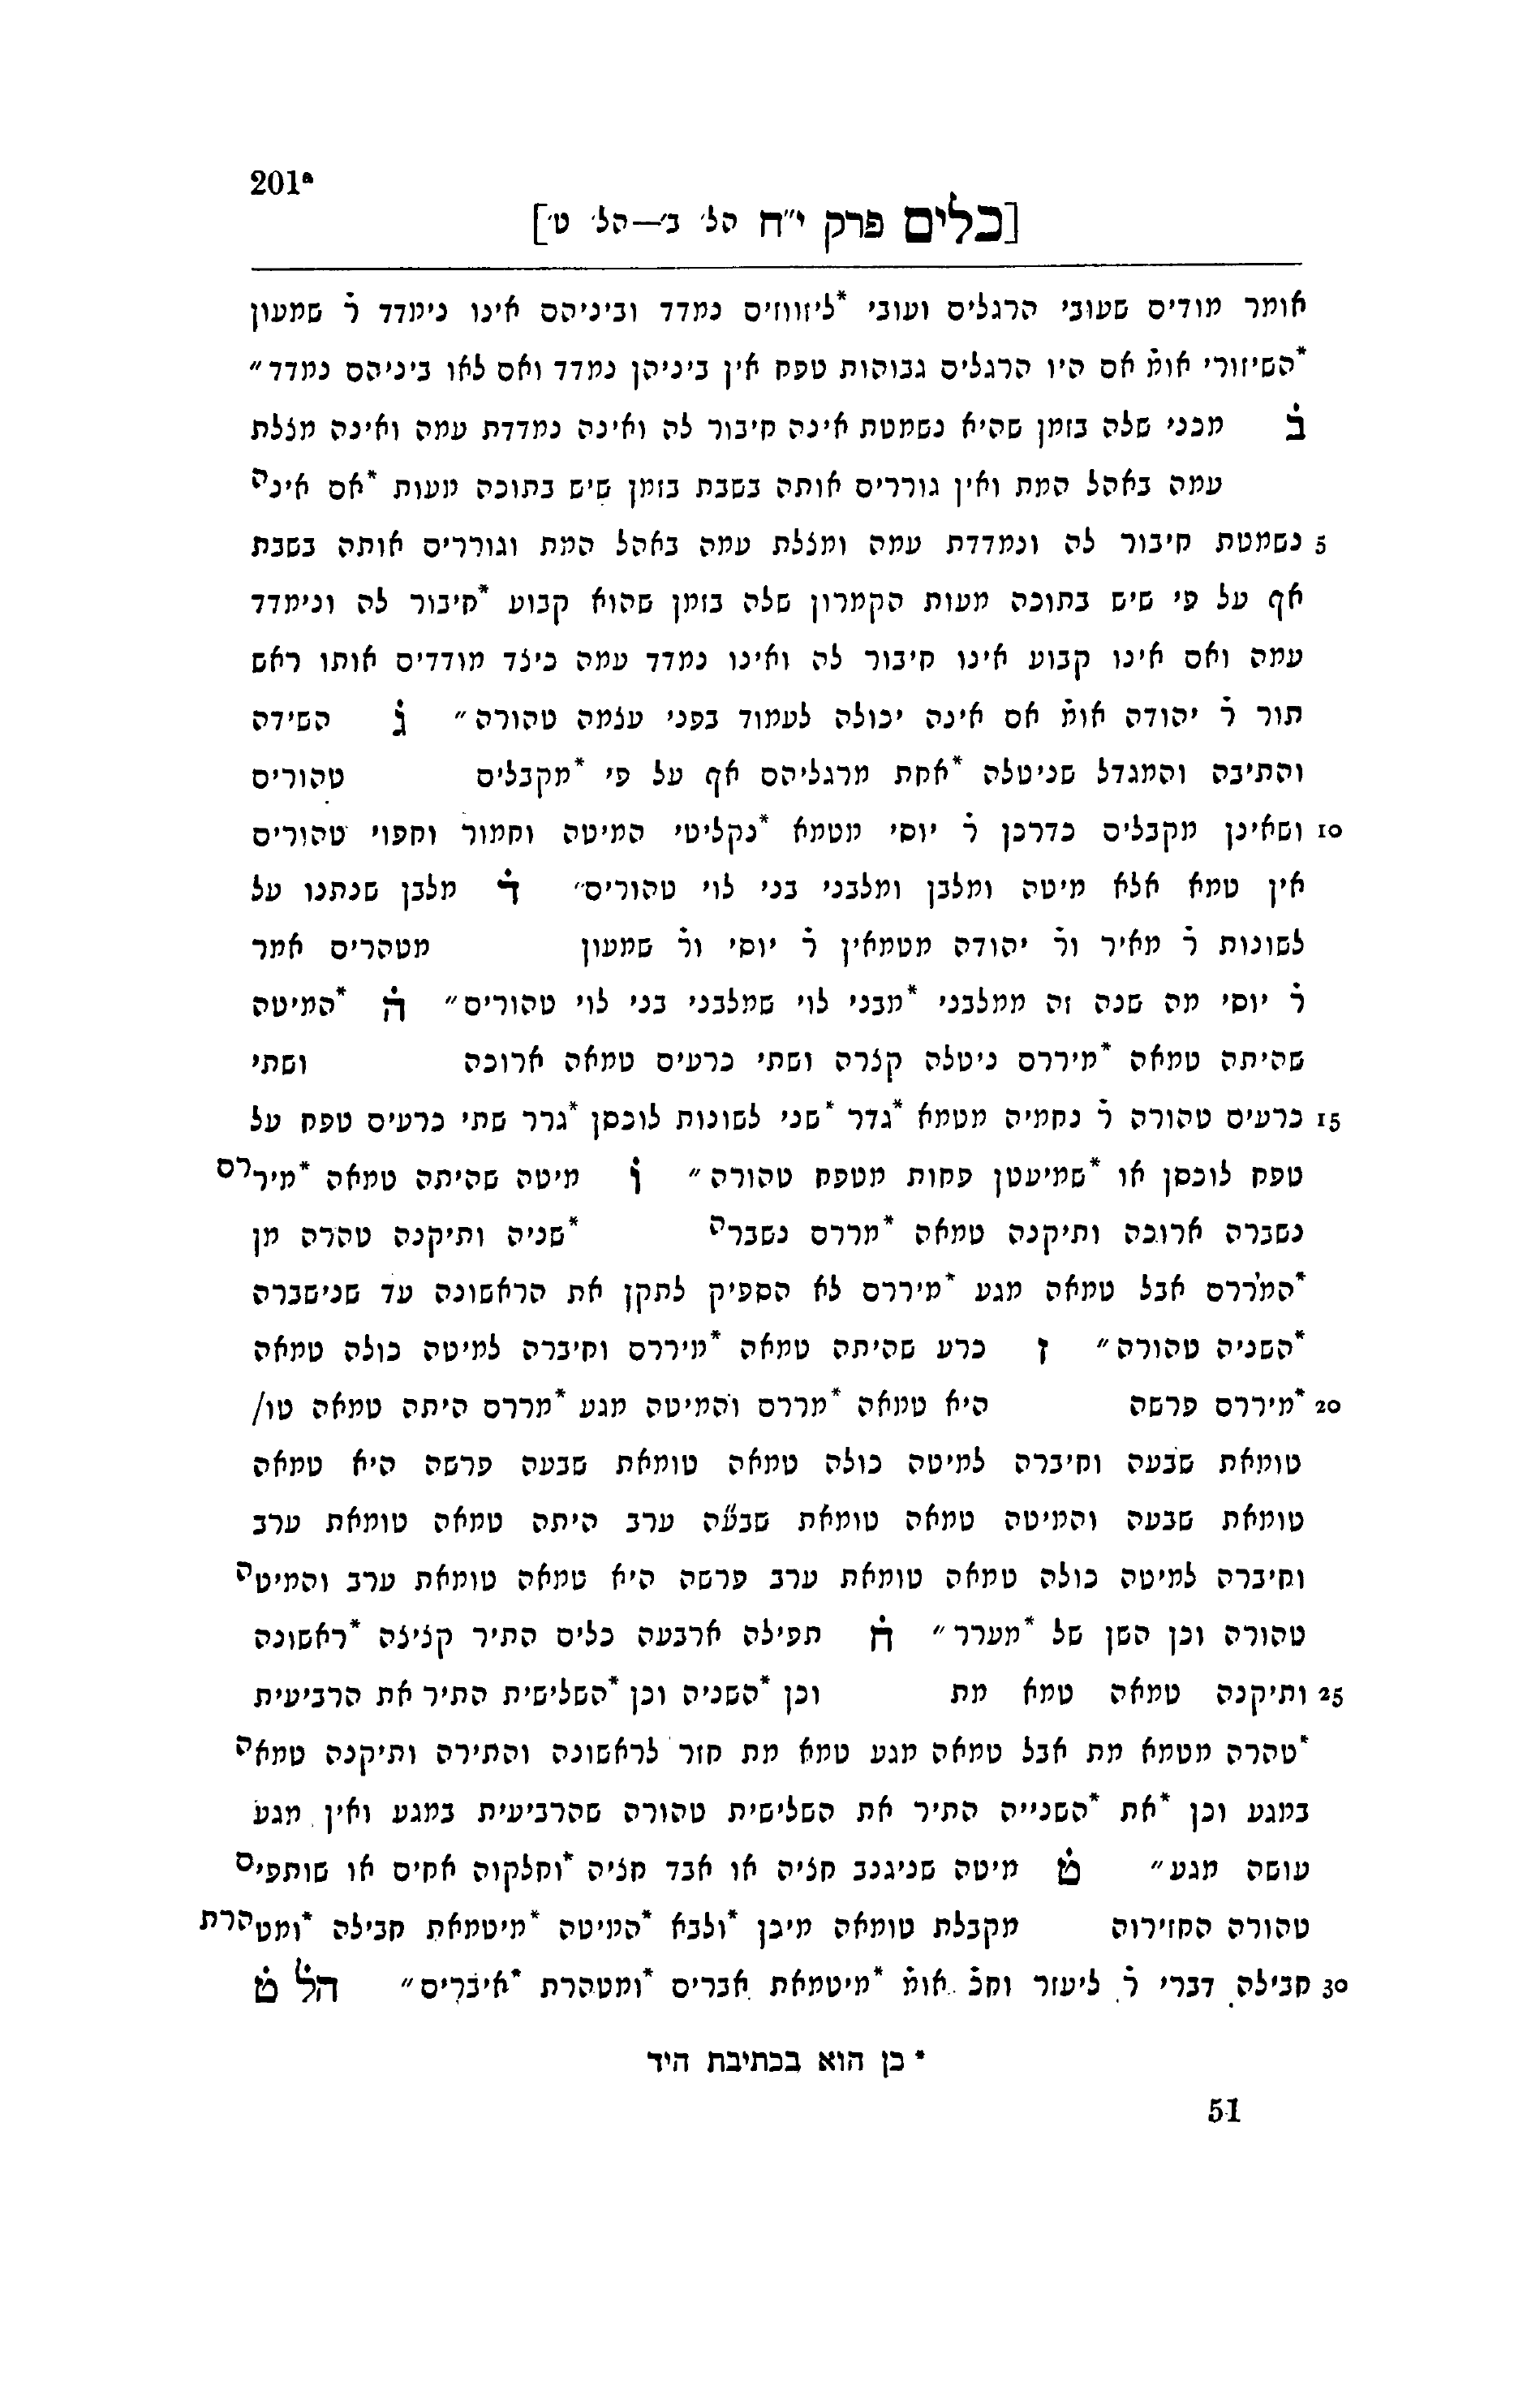 201ª
[כלים פרק י״ח הל׳ ב׳—הל׳ ט׳]
אומר מודים שעובי הרגלים ועובי *ליזווזים נמדד וביניהם אינו נימדד ר̇ שמעון
*השיזורי אומ̇ אם היו הרגלים גבוהות טפח אין ביניהן נמדד ואם לאו ביניהם נמדד״
ב̇ מכני שלה בזמן שהיא נשמטת אינה חיבור לה ואינה נמדדת עמה ואינה מצלת
עמה באהל המת ואין גוררים אותה בשבת בזמן שיש בתוכה מעות *אם אינה
5 נשמטת חיבור לה ונמדדת עמה ומצלת עמה באהל המת וגוררים אותה בשבת
אף על פי שיש בתוכה מעות הקמרון שלה בזמן שהוא קבוע *חיבור לה ונימדד
עמה ואם אינו קבוע אינו חיבור לה ואינו נמדד עמה כיצד מודדים אותו ראש
תור ר̇ יהודה אומ̇ אם אינה יכולה לעמוד בפני עצמה טהורה״ ג̇ השידה
והתיבה והמגדל שניטלה *אחת מרגליהם אף על פי *מקבלים טהורים
10 ושאינן מקבלים כדרכן ר̇ יוסי מטמא *נקליטי המיטה וחמור וחפוי טהורים
אין טמא אלא מיטה ומלבן ומלבני בני לוי טהורים״ ד̇ מלבן שנתנו על
לשונות ר̇ מאיר ור̇ יהודה מטמאין ר̇ יוסי ור̇ שמעון מטהרים אמר
ר̇ יוסי מה שנה זה ממלבני *מבני לוי שמלבני בני לוי טהורים״ ה̇ *המיטה
שהיתה טמאה *מיררס ניטלה קצרה ושתי כרעים טמאה ארוכה ושתי
15 כרעים טהורה ר̇ נחמיה מטמא *גדר *שני לשונות לוכסן *גרר שתי כרעים טפח על
טפח לוכסן או *שמיעטן פחות מטפח טהורה״ ו̇ מיטה שהיתה טמאה *מיררס
נשברה ארוכה ותיקנה טמאה *מררס נשברה *שניה ותיקנה טהרה מן
*המררס אבל טמאה מגע *מיררס לא הספיק לתקן את הראשונה עד שנישברה
*השניה טהורה״ ז̇ כרע שהיתה טמאה *מיררס וחיברה למיטה כולה טמאה
20 *מיררס פרשה היא טמאה *מררס והמיטה מגע *מררס היתה טמאה טו/
טומאת שבעה וחיברה למיטה כולה טמאה טומאת שבעה פרשה היא טמאה
טומאת שבעה והמיטה טמאה טומאת שבע̈ה ערב היתה טמאה טומאת ערב
וחיברה למיטה כולה טמאה טומאת ערב פרשה היא טמאה טומאת ערב והמיטה
טהורה וכן השן של *מערר״ ח̇ תפילה ארבעה כלים התיר קציצה *ראשונה
25 ותיקנה טמאה טמא מת וכן *השניה וכן *השלישית התיר את הרביעית
*טהרה מטמא מת אבל טמאה מגע טמא מת חזר לראשונה והתירה ותיקנה טמאה
במגע וכן *את *השנייה התיר את השלישית טהורה שהרביעית במגע ואין מגע
עושה מגע״ ט̇ מיטה שניגנב חציה או אבד חציה *וחלקוה אחים או שותפים
טהורה החזירוה מקבלת טומאה מיכן *ולבא *המיטה *מיטמאת חבילה *ומטהרת
30 חבילה דברי ר̇ ליעזר וחכ̇ אומ̇ *מיטמאת אברים *ומטהרת *איברים״ הל̇ ט̇
* כן הוא בכתיבת היד
51